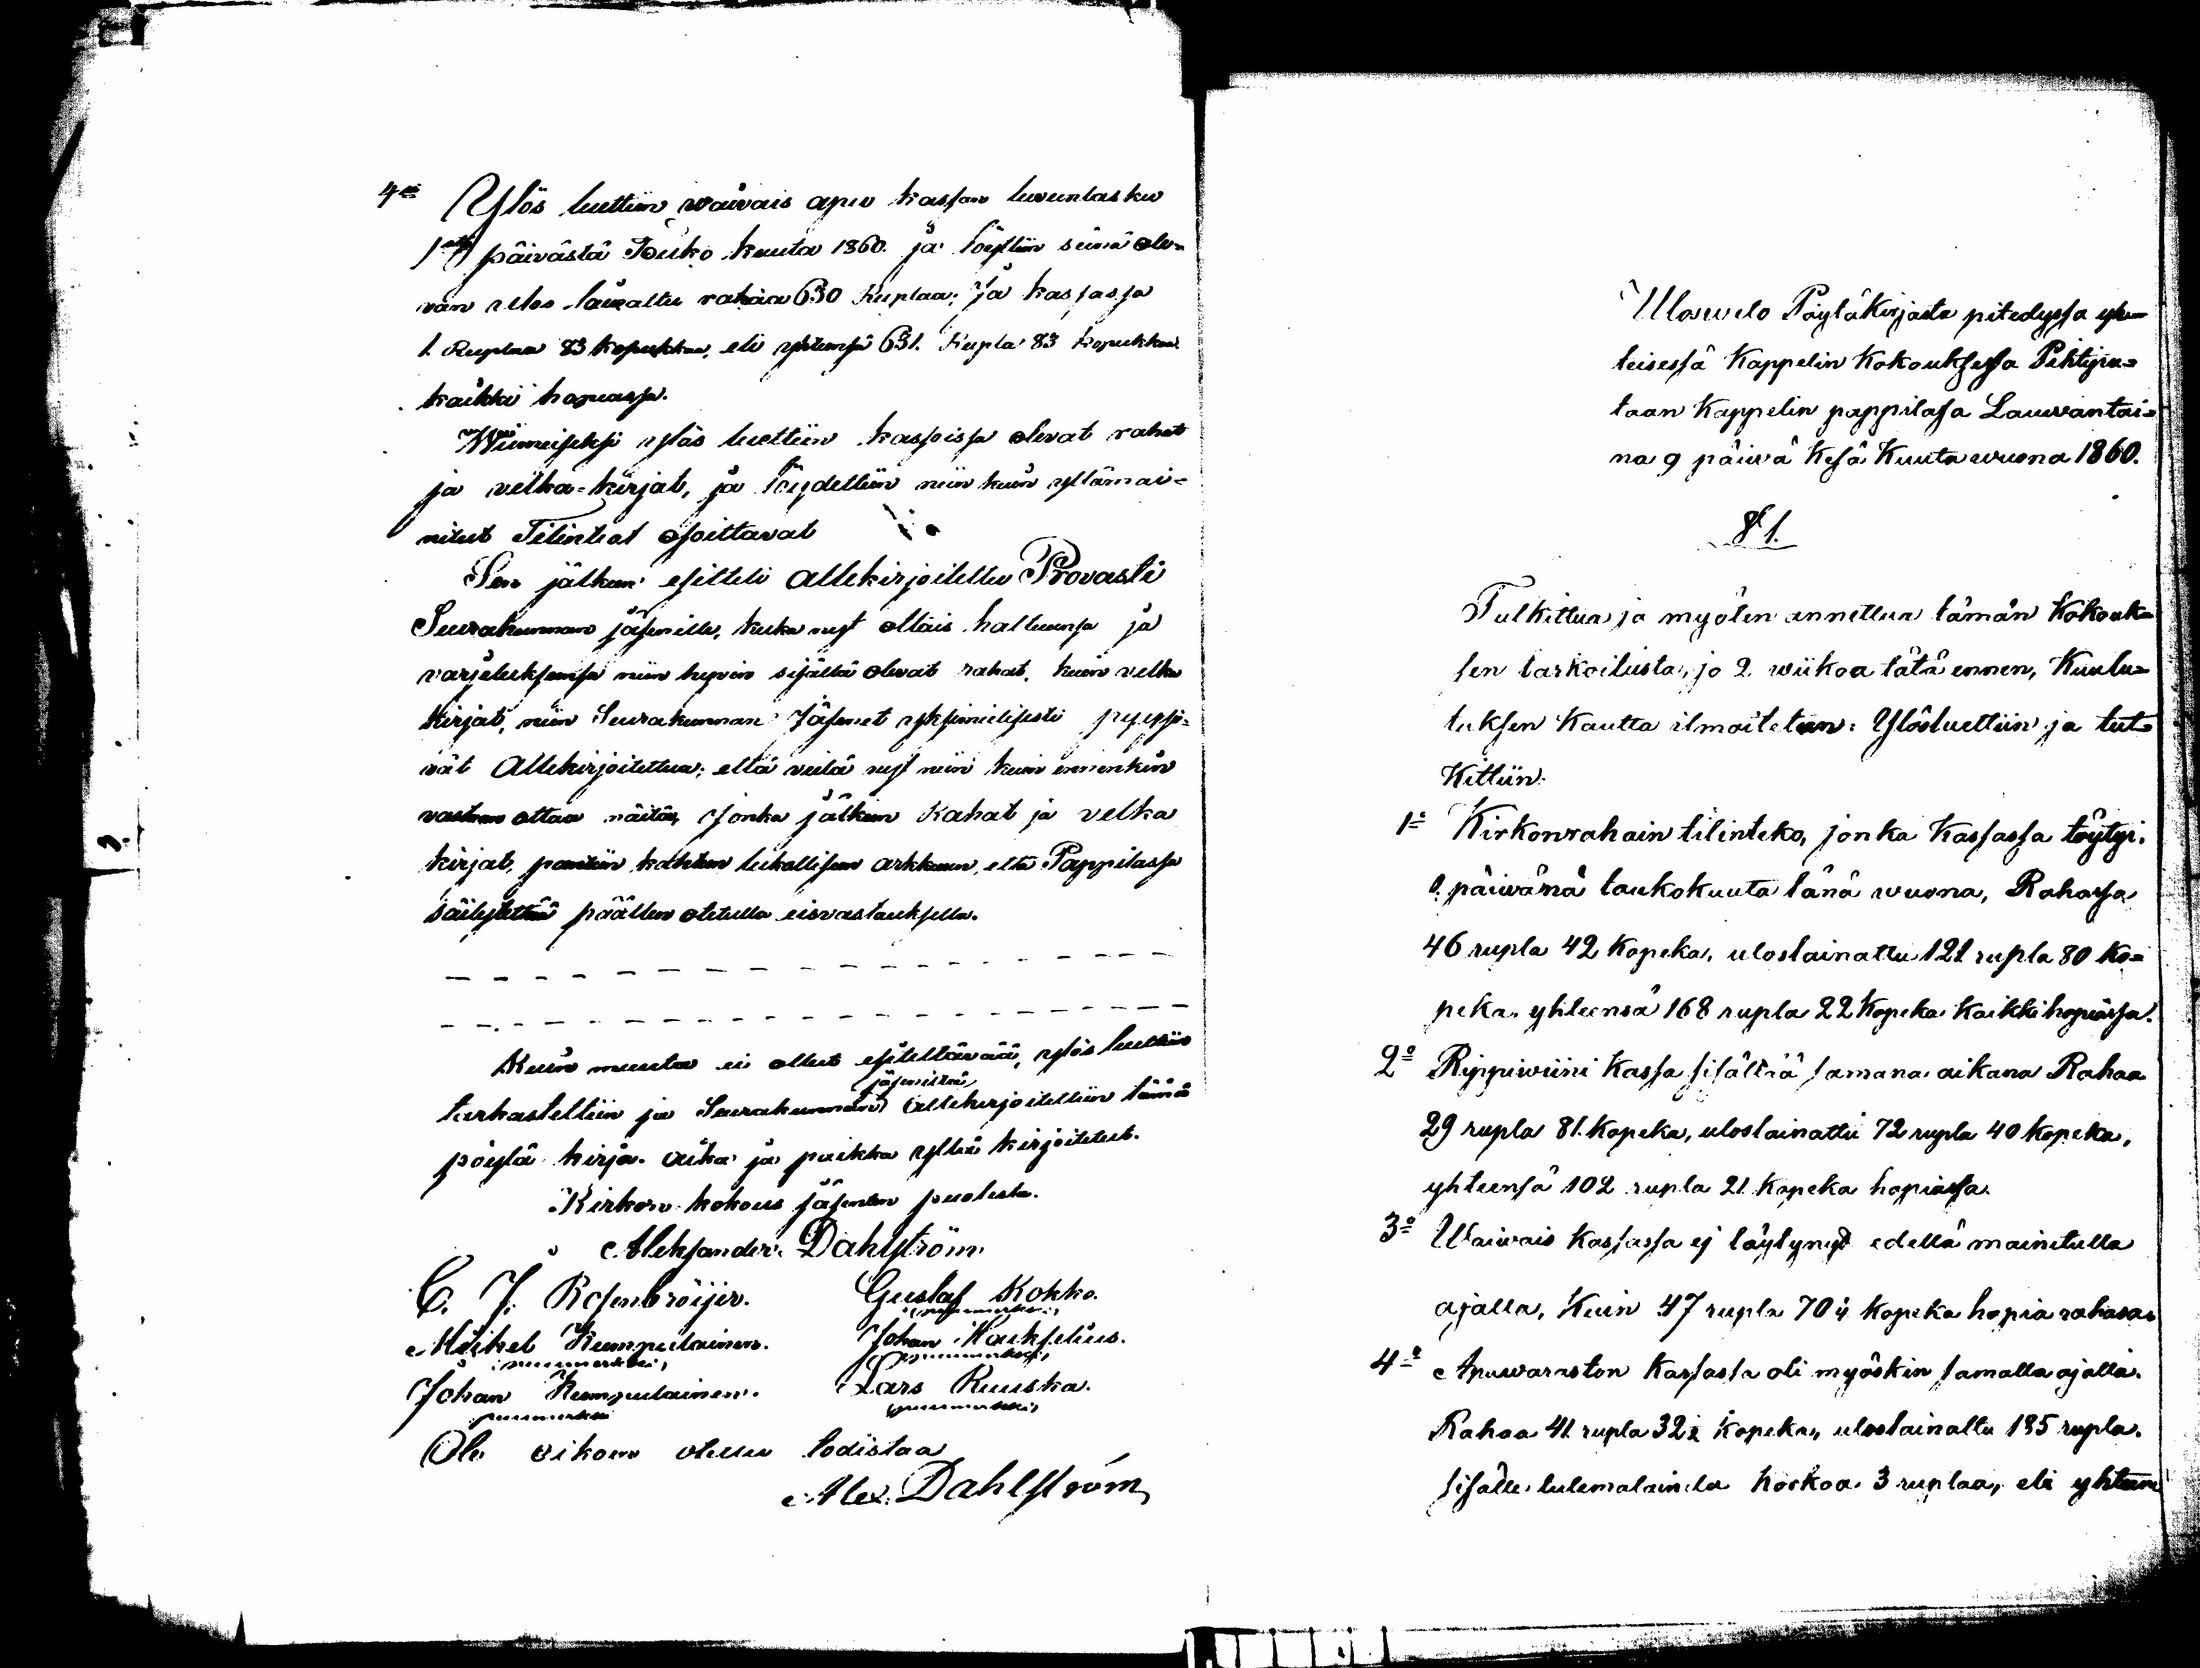 4:o Ylös luettiin waivais apu kassan luvunlasku
1:stä päivästä Touko kuuta 1860. ja löyttiin siinä ole-
van ulos lainattu rahaa 630 Ruplaa; ja kassassa
1. Ruplaa 83 kopekkaa, eli yhteensä 631. Rupla 83 kopekkaa
kaikki hopiassa.
Wiimeiseksi ylös luettiin kassoissa olevat rahat
ja velka-kirjat, ja löydettiin niin kuin yllämai-
nitut Tilinteot osoittavat
Sen jälkeen esitteli allekirjoitettu Provasti
Seurakunnan jäsenille, kuka nyt ottais halluunsa ja
varjeluksensa niin hyvin sisällä olevat rahat, kuin velka
kirjat, niin Seurakunnan Jäsenet yksimielisesti pyysi-
vät Allekirjoitettua; että vielä nyt niin kuin ennenkin
vastaan ottaa näitä, Jonka jälkeen Rahat ja velka
kirjat, pantiin kahteen lukolliseen arkkuun, että Pappilassa
säilytettää päällen otetulla eisvastauksella.
Kuin muuta ei ollut esiteltävää, ylös luettiin
jäseniltä
tarkastettiin ja Seurakunnan allekirjoitettiin tämä
pöytä kirja. Aika ja paikka yllä kirjoitetut.
Kirkon kokous jäsenten puolesta.
Aleksander Dahlström
C. J. Rosenbröijer. Gustaf Kokko.
(puumerkki)
Mickel Kumpulainen. Johan Haukselius.
(puumerkki) (puumerkki)
Johan Kumpulainen. Lars Ruuska.
puumerkki (puumerkki)
Ole oikein oleva todistaa
Alex. Dahlström
3.
Uloswelo Pöytäkirjasta pitedyssa yh-
teisessä Kappelin Kokouksessa Pihtipu-
taan Kappelin pappilasa Lauwantai-
na 9 päiwä Kesä Kuuta wuona 1860.
§ 1.
Tulkittua ja myöten annettua tämän Kokouk-
sen tarkoitusta, jo 2 wiikoa tätä ennen, Kuulu-
tuksen Kautta ilmoitetun: Ylösluettiin ja tut-
Kittiin:
1:o Kirkonrahain tilinteko, jonka Kassassa töytyi.
1. päiwänä toukokuuta tänä wuona, Rahassa
46 rupla 42 Kopeka, uloslainattu 121 rupla 80 Ko-
peka. yhteensä 168 rupla 22 Kopeka Kaikki hopiassa.
2:o Rippiwiini Kassa sisältää samana aikana Rahaa
29 rupla 81. Kopeka, uloslainattu 72 rupla 40 Kopeka,
yhteensä 102 rupla 21 Kopeka hopiassa.
3:o Waiwais Kassassa ej löytynyt edellä mainitulla
ajalla, Kuin 47 rupla 70½ Kopeka hopia rahasa.
4:o Apuwaraston Kassassa oli myöskin samalla ajalla.
Rahaa 41 rupla 32½ Kopeka, uloslainattu 135 rupla.
sisälle tulematainda korkoa 3 ruplaa, eli yhteen